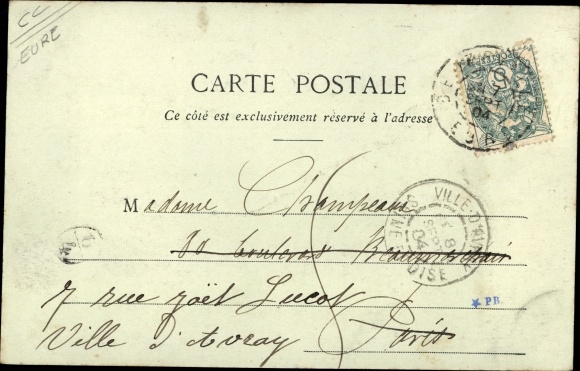 CC
EURE
CARTE POSTALE
Ce côté est exclusivement réservé à l'adresse
Madame Champeaux
80 boulevard Beaumarchais
7 rue Joët Lucot
Ville d'Avray Paris
VILLE-D'AVRAY
SEINE-ET-OISE
8
SEPT
04
EURE
SEPT
04
★ PB